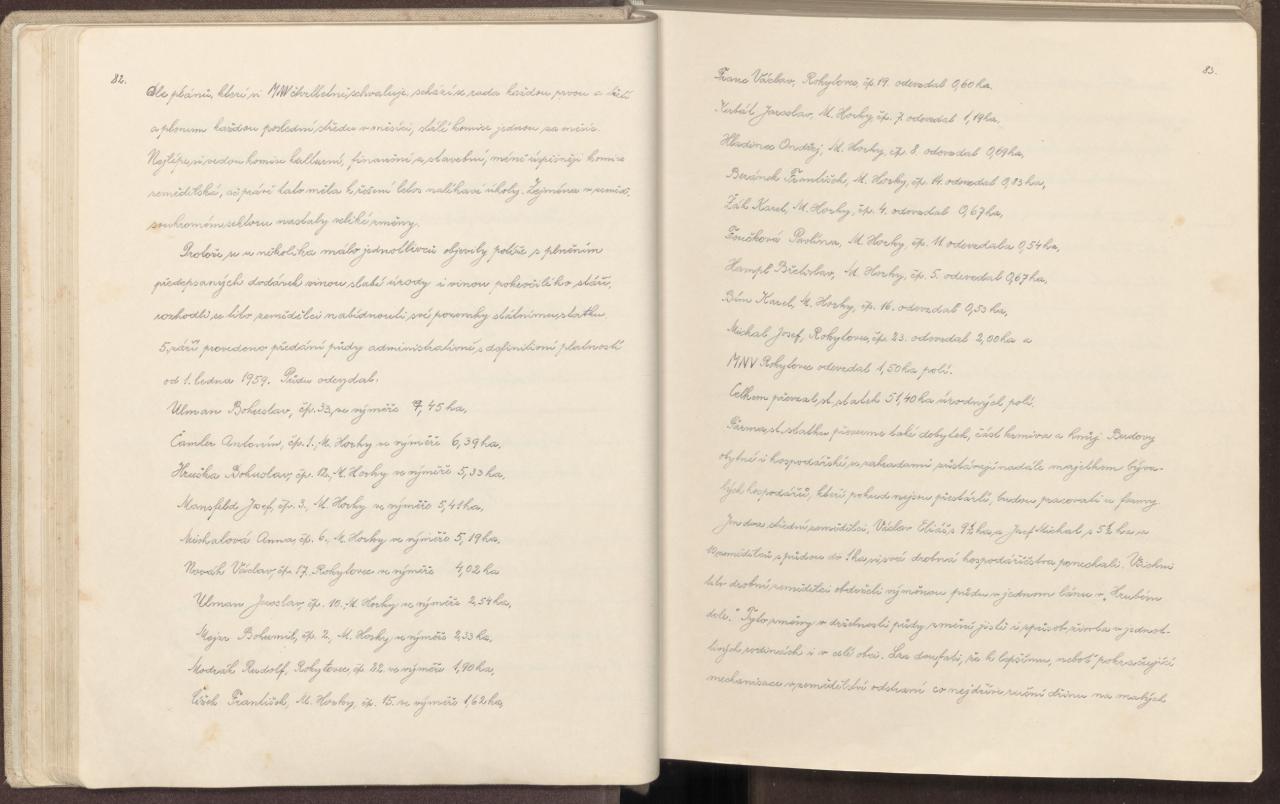 82.
Dle plánů, které si MNV čtvrtletně schvaluje, schází se rada každou prvou a třetí
a plenum každou poslední středu v měsíci, stálé komise jednou za měsíc.
Nejlépe si vedou komise kulturní, finanční a stavební, méně úspěšněji komise
zemědělská, ač právě tato měla k řešení letos naléhavé úkoly. Zejména v zeměd.
soukromém sektoru nastaly veliké změny.
Protože se u několika málo jednotlivců objevily potíže s plněním
předepsaných dodávek vinou slabé úrody i vinou pokročilého stáří,
rozhodli se tito zemědělci nabídnouti své pozemky státnímu statku.
5. září provedeno předání půdy administrativně s definitivní platností
od 1. ledna 1959. Půdu odevzdal:
Ulman Bohuslav, čp. 33, ve výměře 7,45 ha,
Čamler Antonín, čp. 1. M. Horky ve výměře 6,39 ha,
Hruška Bohuslav, čp. 12, M. Horky ve výměře 5,83 ha,
Mansfeld Josef, čp. 3, M. Horky ve výměře 5,41 ha,
Michalová Anna, čp. 6, M. Horky ve výměře 5,19 ha,
Novák Václav, čp. 17, Rokytovec ve výměře 4,02 ha
Ulman Jaroslav, čp. 10, M. Horky ve výměře 2,54 ha,
Mejzr Bohumil, čp. 2, M. Horky, ve výměře 2,33 ha,
Modrák Rudolf, Rokytovec, čp. 22, ve výměře 1,90 ha,
Čížek František, M. Horky, čp. 15. ve výměře 1,62 ha,
83.
Franc Václav, Rokytovec, čp. 19. odevzdal 0,60 ha,
Kubát Jaroslav, M. Horky, čp. 7. odevzdal 1,19 ha,
Hladinec Ondřej, M. Horky, čp. 8. odevzdal 0,69 ha,
Beránek František, M. Horky, čp. 14. odevzdal 0,83 ha,
Žák Karel, M. Horky, čp. 4. odevzdal 0,67 ha,
Foučková Pavlína, M. Horky, čp. 11 odevzdala 0,54 ha,
Hampl Břetislav, M. Horky, čp. 5. odevzdal 0,67 ha,
Bím Karel, M. Horky, čp. 16. odevzdal 0,53 ha,
Michal Josef, Rokytovec, čp. 23. odevzdal 2,00 ha a
MNV Rokytovec odevzdal 1,50 ha polí.
Celkem převzal st. statek 51,40 ha úrodných polí.
Farma st. statku převzme také dobytek, část krmiva a hnůj. Budovy
obytné i hospodářské se zahradami zůstávají nadále majetkem býva-
lých hospodářů, kteří, pokud nejsou přestárlí, budou pracovati u farmy.
Jen dva střední zemědělci, Václav Eliáš s 9½ ha, a Josef Michal, s 5½ ha a
zemědělců s půdou do 1 ha, si svá drobná hospodářství ponechali. Všichni
tito drobní zemědělci obdrželi výměnou půdu v jednom lánu v „Hrubém
dole." Tyto změny v držebnosti půdy změní jistě i způsob života v jednot-
livých rodinách i v celé obci. Lze doufati, že k lepšímu, neboť pokračující
mechanisace v zemědělství odstraní co nejdříve ruční dřinu na malých